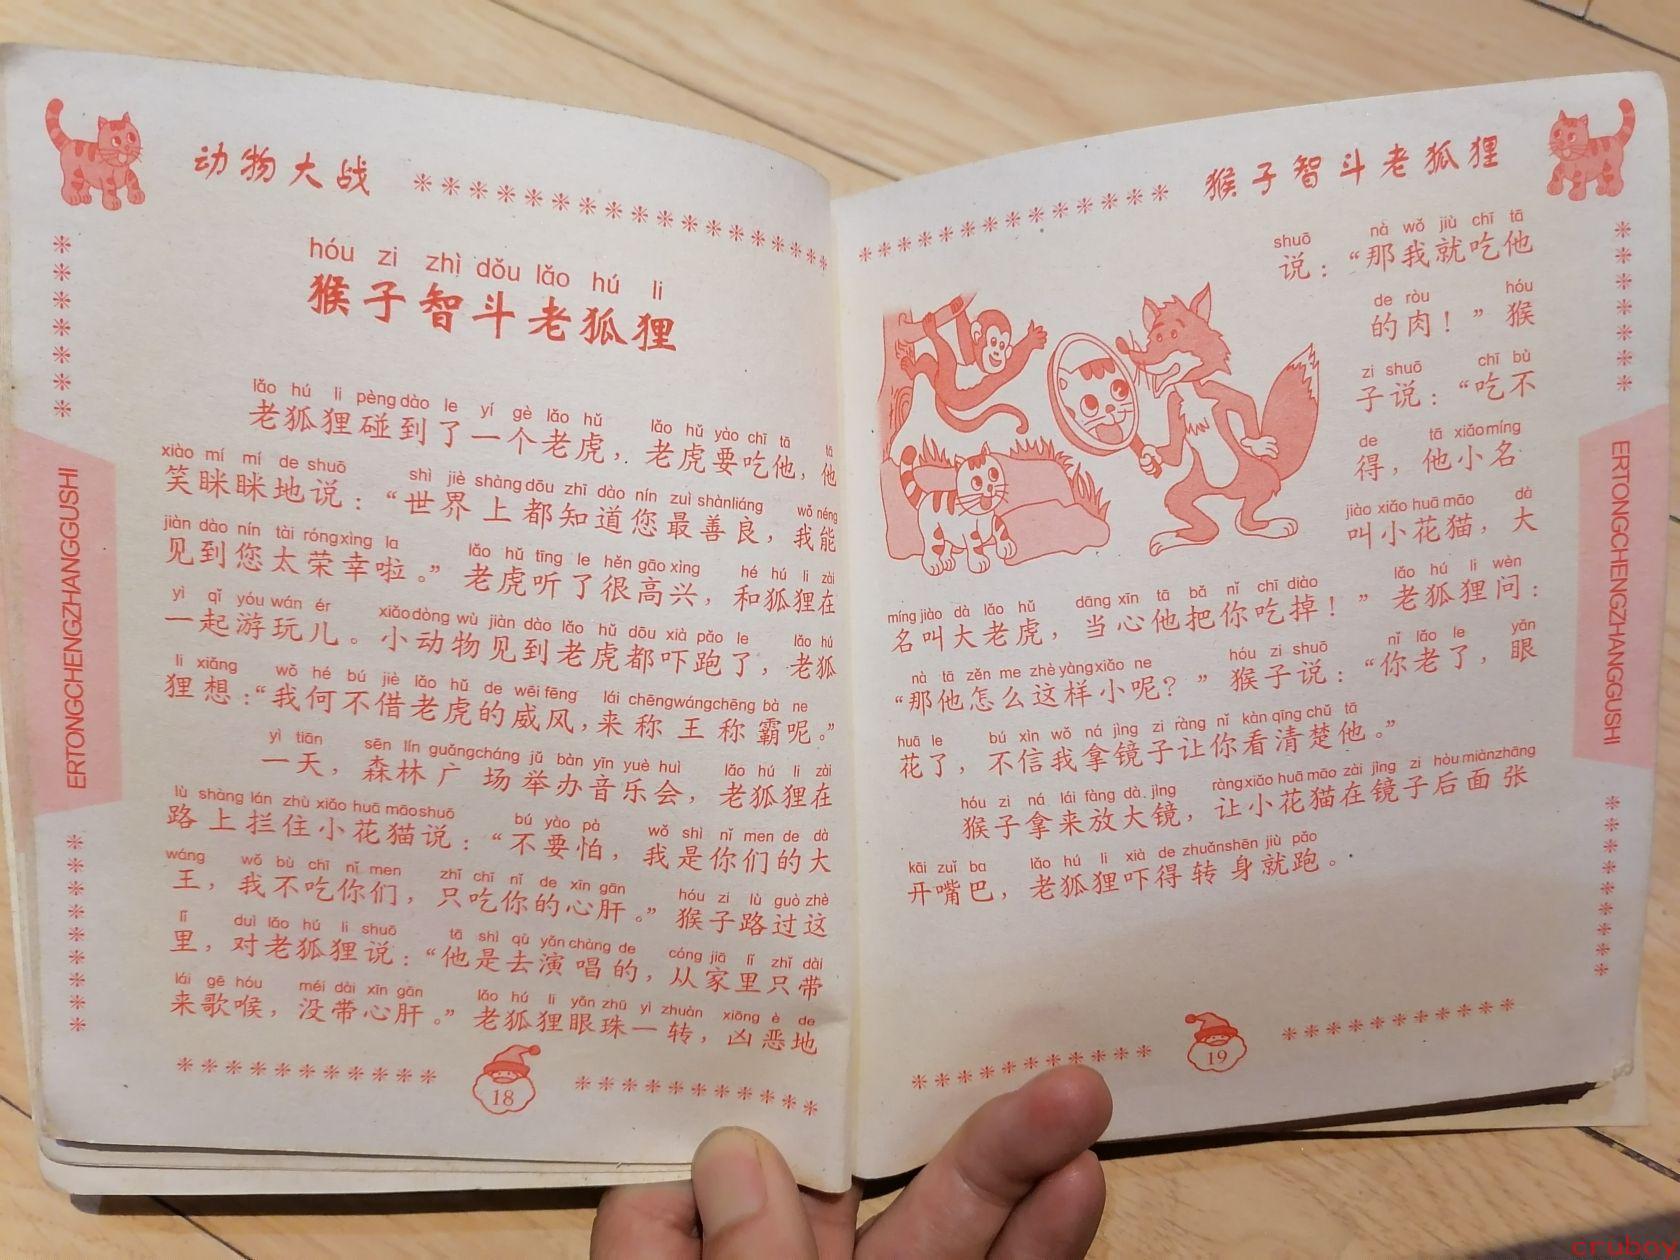 动物大战
hóu zi zhì dǒu lǎo hú li
猴子智斗老狐狸
lǎo hú li pèng dào le yí gè lǎo hǔ lǎo hǔ yào chī tā tā
老狐狸碰到了一个老虎，老虎要吃他，他
xiào mí mí de shuō shì jiè shàng dōu zhī dào nín zuì shànliáng wǒ néng
笑眯眯地说：“世界上都知道您最善良，我能
jiàn dào nín tài róng xìng la lǎo hǔ tīng le hěn gāo xìng hé hú li zài
见到您太荣幸啦。”老虎听了很高兴，和狐狸在
yì qǐ yóu wán ér xiǎo dòng wù jiàn dào lǎo hǔ dōu xià pǎo le lǎo hú
一起游玩儿。小动物见到老虎都吓跑了，老狐
li xiǎng wǒ hé bú jiè lǎo hǔ de wēi fēng lái chēngwángchēng bà ne
狸想：“我何不借老虎的威风，来称王称霸呢。”
yì tiān sēn lín guǎngcháng jǔ bàn yīn yuè huì lǎo hú li zài
一天，森林广场举办音乐会，老狐狸在
lù shàng lán zhù xiǎo huā māo shuō bú yào pà wǒ shì nǐ men de dà
路上拦住小花猫说：“不要怕，我是你们的大
wáng wǒ bù chī nǐ men zhǐ chī nǐ de xīn gān hóu zi lù guò zhè
王，我不吃你们，只吃你的心肝。”猴子路过这
lǐ duì lǎo hú li shuō tā shì qù yǎn chàng de cóng jiā lǐ zhǐ dài
里，对老狐狸说：“他是去演唱的，从家里只带
lái gē hóu méi dài xīn gān lǎo hú li yǎn zhū yì zhuàn xiōng è de
来歌喉，没带心肝。”老狐狸眼珠一转，凶恶地
18
ERTONGCHENGZHANGGUSHI
猴子智斗老狐狸
shuō nà wǒ jiù chī tā
说：“那我就吃他
de ròu hóu
的肉！”猴
zi shuō chī bù
子说：“吃不
de tā xiǎo míng
得，他小名
jiào xiǎo huā māo dà
叫小花猫，大
míng jiào dà lǎo hǔ dāng xīn tā bǎ nǐ chī diào lǎo hú li wèn
名叫大老虎，当心他把你吃掉！”老狐狸问：
nà tā zěn me zhè yàng xiǎo ne hóu zi shuō nǐ lǎo le yǎn
“那他怎么这样小呢？”猴子说：“你老了，眼
huā le bú xìn wǒ ná jìng zi ràng nǐ kàn qīng chǔ tā
花了，不信我拿镜子让你看清楚他。”
hóu zi ná lái fàng dà jìng ràng xiǎo huā māo zài jìng zi hòu miàn zhāng
猴子拿来放大镜，让小花猫在镜子后面张
kāi zuǐ ba lǎo hú li xià de zhuǎnshēn jiù pǎo
开嘴巴，老狐狸吓得转身就跑。
19
ERTONGCHENGZHANGGUSHI
cruboy